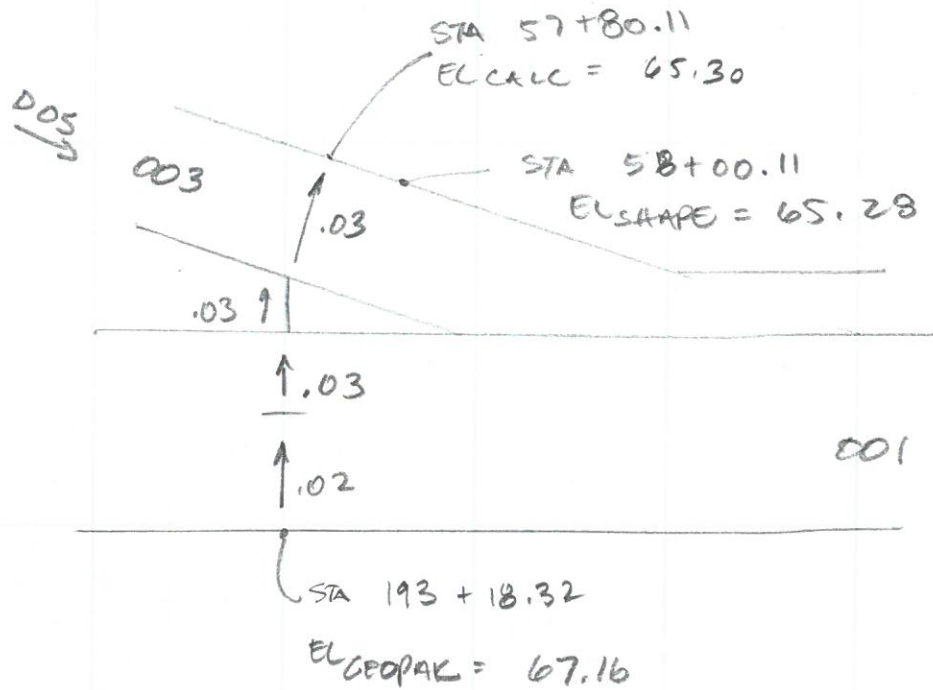 STA 57+80.11
EL CALC = 65.30
D05
003
STA 58+00.11
EL SHAPE = 65.28
.03
.03
.03
001
.02
STA 193 + 18.32
EL GEOPAK = 67.16